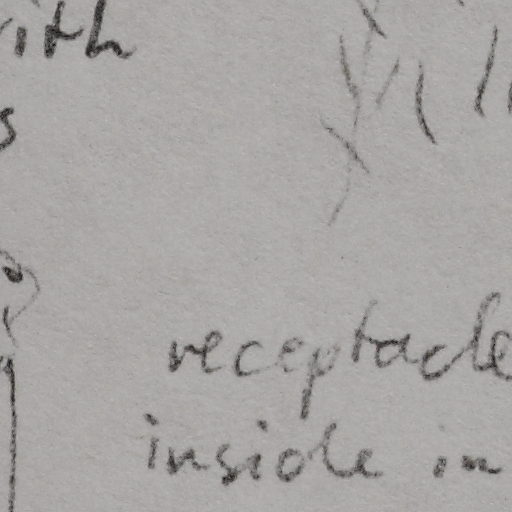 with
s
receptacle
inside in